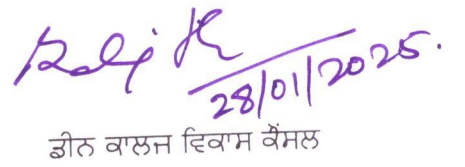 28/01/2025.
ਡੀਨ ਕਾਲਜ ਵਿਕਾਸ ਕੌਂਸਲ